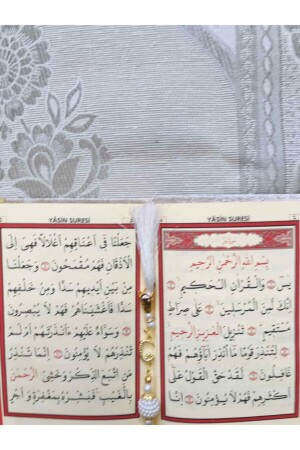 YÂSÎN SURESİ
بِسْمِ اللهِ الرَّحْمٰنِ الرَّحِيمِ
يٰسٓ وَالْقُرْاٰنِ الْحَكِيمِ
اِنَّكَ لَمِنَ الْمُرْسَلِينَ عَلٰى صِرَاطٍ
مُسْتَقِيمٍ تَنْزِيلَ الْعَزِيزِ الرَّحِيمِ
لِتُنْذِرَ قَوْمًا مَٓا اُنْذِرَ اٰبَٓاؤُ۬هُمْ فَهُمْ
غَافِلُونَ لَقَدْ حَقَّ الْقَوْلُ عَلٰٓى
اَكْثَرِهِمْ فَهُمْ لَا يُؤْمِنُونَ اِنَّا
YÂSÎN SURESİ
جَعَلْنَا فِٓى اَعْنَاقِهِمْ اَغْلَالًا فَهِىَ اِلَى
الْاَذْقَانِ فَهُمْ مُقْمَحُونَ وَجَعَلْنَا
مِنْ بَيْنِ اَيْدِيهِمْ سَدًّا وَمِنْ خَلْفِهِمْ
سَدًّا فَاَغْشَيْنَاهُمْ فَهُمْ لَا يُبْصِرُونَ
وَسَوَٓاءٌ عَلَيْهِمْ ءَاَنْذَرْتَهُمْ اَمْ لَمْ
تُنْذِرْهُمْ لَا يُؤْمِنُونَ اِنَّمَا تُنْذِرُ
مَنِ اتَّبَعَ الذِّكْرَ وَخَشِىَ الرَّحْمٰنَ
بِالْغَيْبِ فَبَشِّرْهُ بِمَغْفِرَةٍ وَاَجْرٍ